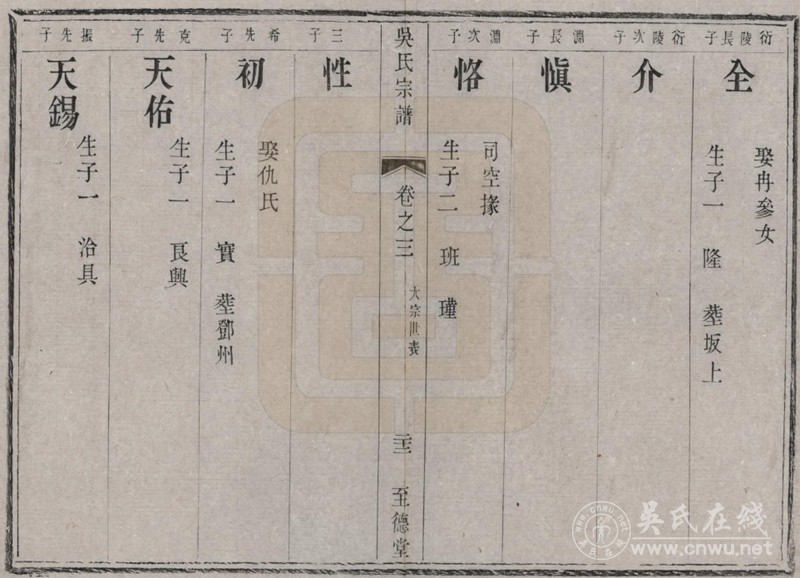 衍陵長子
全
娶冉參女
生子一 隆 塟坂上
衍陵次子
介
淵長子
慎
淵次子
恪
司空掾
生子二 班 瑾
吳氏宗譜
卷之三
大宗世表
二十二
至德堂
三子
性
希先子
初
娶仇氏
生子一 寶 塟鄧州
克先子
天佑
生子一 艮興
振先子
天錫
生子一 治具
吳氏在线
www.cnwu.net